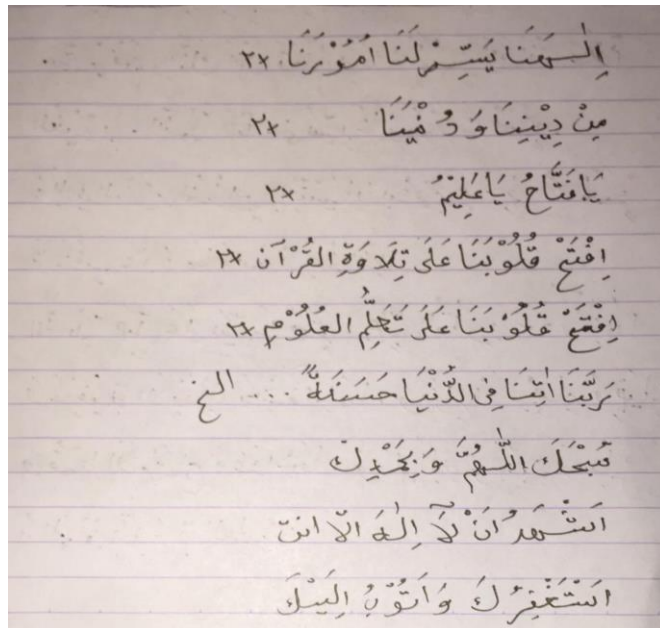 اِلٰهَنَا يَسِّرْ لَنَا اُمُوْرَنَا ×٢
مِنْ دِيْنِنَا وَ دُنْيَنَا ×٢
يَا فَتَّاحُ يَا عَلِيْمُ ×٢
اِفْتَحْ قُلُوْبَنَا عَلَى تِلَاوَةِ القُرْآن ×٢
اِفْتَحْ قُلُوْبَنَا عَلَى تَعَلُّمِ العُلُوْمِ ×٢
رَبَّنَا اٰتِنَا فِى الدُّنْيَا حَسَنَةً ... الخ
سُبْحٰنَكَ اللّٰهُمَّ وَبِحَمْدِكَ
اَشْهَدُ اَنْ لَآ اِلٰهَ اِلّا انت
اَسْتَغْفِرُكَ وَاَتُوْبُ اِلَيْكَ